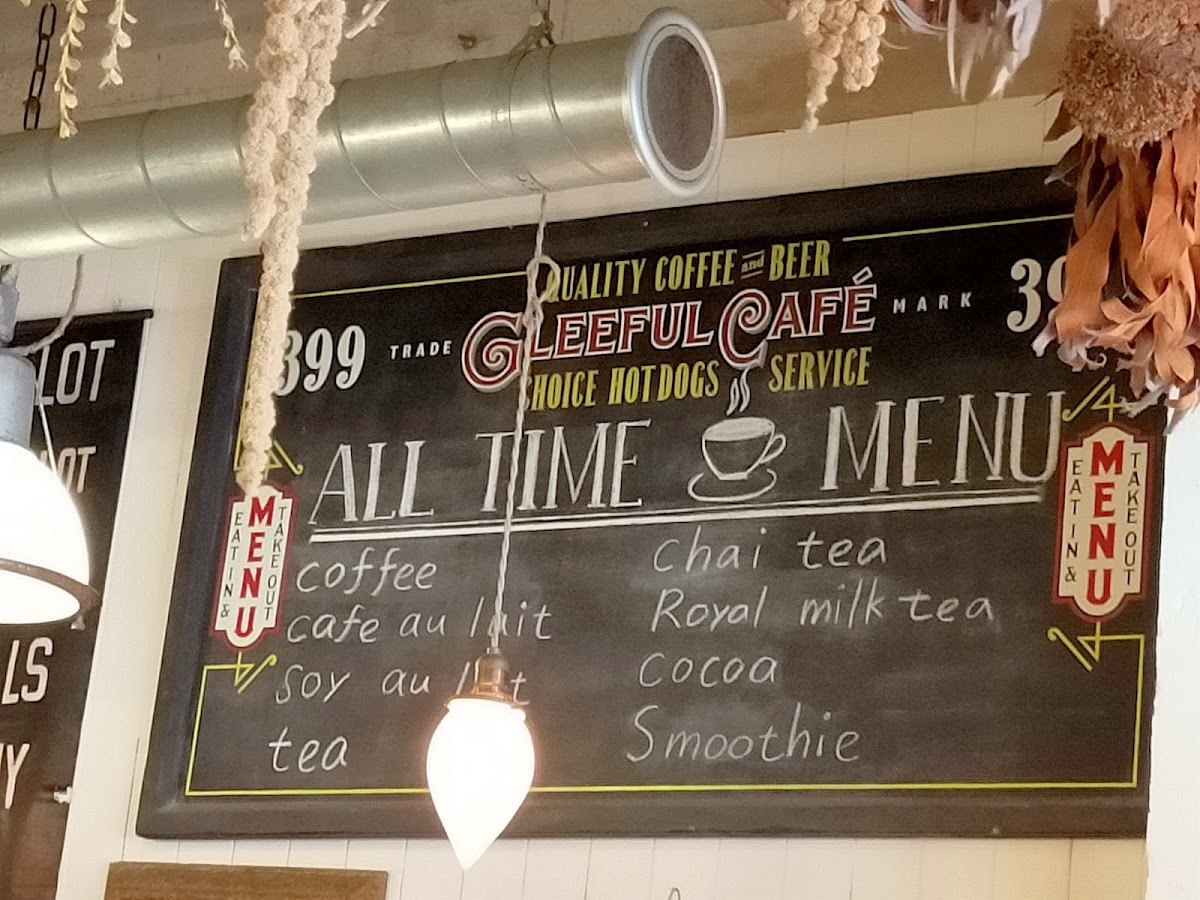 QUALITY COFFEE and BEER
399 TRADE GLEEFUL CAFÉ MARK
CHOICE HOTDOGS SERVICE
ALL TIME MENU
EAT IN &
MENU
TAKE OUT
coffee
cafe au lait
Soy au lait
tea
chai tea
Royal milk tea
cocoa
Smoothie
EAT IN &
MENU
TAKE OUT